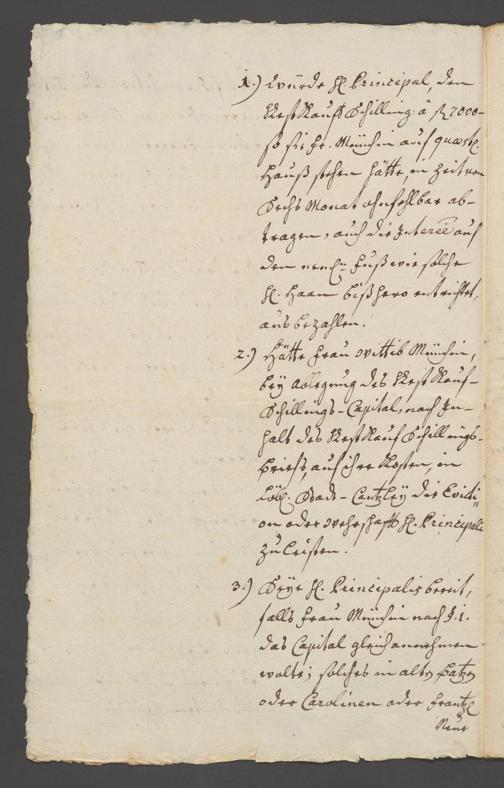 1.) Würde H. Principal, den
Rest Kauf Schilling à fl. 7000
so sie Fr. Münchin auf quaest.
Hauß stehen hätte, in Zeit von
Sechs Monat ohnfehlbar ab-
tragen, auch die Interee auf
den nemch. Fuß wie solche
H. Haan bißhero entrichtet,
aus bezahlen.
2.) Hätte Frau Wittib Münchin,
bey Ablegung des Rest Kauf-
Schillings-Capital, nach In-
halt des Rest Kauf Schillings-
briefs, auf ihre Kosten, in
löbl. Stadt-Cantzley die Evicti-
on oder Wehrschafft H. Principali
zu leisten.
3.) Seye H. Principalis bereit,
falls Frau Münchin nach §. 1.
das Capital gleich annehmen
wolte; solches in alten Batzen
oder Carolinen oder Frantz.
Neue